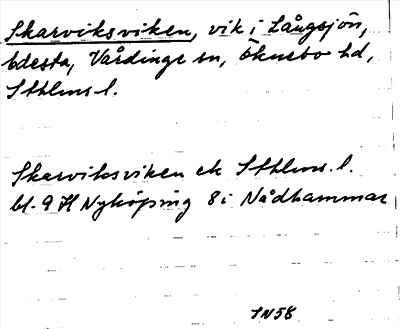 Skarviksviken, vik i Långsjön,
Edesta, Vårdinge sn, Öknebo hd,
Sthlms l.
Skarviksviken ek Sthlms. l.
bl. 9 H Nyköping 8 i Nådhammar
SN58